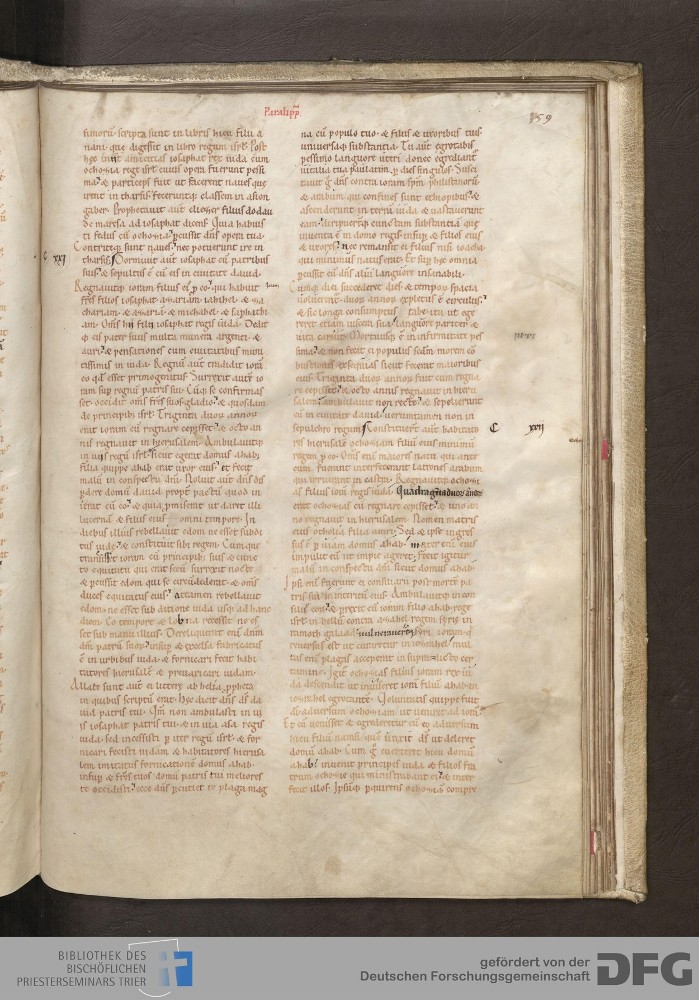 Paralipp̄
159
simorū scripta sunt in libris hieu filii a
nani. que digessit in libro regum isrł. Post
hęc iniit amicitias iosaphat rex iuda cum
ochozia rege isrł cuius opera fuerunt pessi
ma. & particeps fuit ut facerent naues que
irent in tharsis. feceruntq; classem in asion
gaber. Prophetauit aut̄ eliezer filius dodau
de maresa ad iosaphat dicens. Quia habuis
ti fedus cū ochozia. p̄cussit dn̄s opera tua.
Contriteq; sunt naues. nec potuerunt ire in
xxi
tharsis. Dormiuit aut̄ iosaphat cū patribus
suis. & sepultus ē cū eis in ciuitate dauid.
Regnauitq; ioram filius ei' p̄ eo. qui habuit
fr̄es filios iosaphat. azariam. iahihel. & za
chariam. & azariā. & michahel. & saphathi
am. Om̄s hii filii iosaphat regis iuda. Dedit
q; eis pater suus multa munera argenti. &
auri. & pensationes cum ciuitatibus muni
tissimis in iuda. Regnū aut̄ tradidit iorā
eo qd̄ esset primogenitus. Surrexit aut̄ io
ram sup̄ regnū patris sui. Cūq; se confirmas
set. occidit om̄s fr̄es suos gladio. & quosdam
de principib; isrł. Triginta duos annos
erat ioram cū regnare cepisset. & octo an
nis regnauit in hierusalem. Ambulauitq;
in uiis regū isrł. sicut egerat domus ahab.
filia quippe ahab erat uxor eius. et fecit
malū in conspectu dn̄i. Noluit aut̄ dn̄s dis
p̄dere domū dauid propt̄ pactū quod in
ierat cū eo. & quia p̄miserat ut daret illi
lucernā & filiis eius omni tempore. In
diebus illius rebellauit edom ne esset subdi
tus iude. & constituit sibi regem. Cumque
transisset ioram cū principib; suis & cunc
to equitatu qui erat secū surrexit nocte
& p̄cussit edom qui se circūdederat. & om̄s
duces equitatus eius. Attamen rebellauit
edom. ne esset sub ditione iuda usq; ad hanc
diem. Eo tempore & lobna recessit. ne es
set sub manu illius. Dereliquerat enī dn̄m
dm̄ patrū suorū. insup̄ & excelsa fabricatus
ē in urbibus iuda. & fornicari fecit habi
tatores hierusalē. & preuaricari iudam.
Allate sunt aut̄ ei littere ab helia p̄pheta
in quibus scriptū erat. Hęc dicit dn̄s ds̄ da
uid patris tui. Qm̄ non ambulasti in ui
is iosaphat patris tui. & in uia asa regis
iuda. sed incessisti p̄ iter regū isrł. & for
nicari fecisti iudam & habitatores hierusa
lem imitatus fornicationē domus ahab.
insup̄ & fr̄es tuos domū patris tui meliores
te occidisti. ecce dn̄s p̄cutiet te plaga mag
na cū populo tuo. & filiis & uxoribus tuis
universaq; substantia. Tu aut̄ egrotabis
pessimo languore uteri donec egrediant'
uitalia tua paulatim p̄ dies singulos. Susci
tauit g° dn̄s contra ioram spm̄ philistinorū
& arabum qui confines sunt ethiopibus. &
ascenderunt in terrā iuda & uastauerunt
eam. diripueruntq; cunctam substantiā que
inuenta ē in domo regis. insup̄ & filios eius
& uxores. nec remansit ei filius nisi ioacha
qui minimus natu erat. Et sup̄ hęc omnia
p̄cussit eū dn̄s alui languore insanabili.
Cumq; diei succederet dies & temporū spacia
uoluerent'. duorū annorū expletus ē circulus.
& sic longa consumptus tabe. ita ut ege
reret etiam uiscera sua. languore pariter &
uita caruit. Mortuusq; ē in infirmitate pes
sima. & non fecit ei populus scd̄m morem cō
bustionis exsequias sicut fecerat maioribus
eius. Triginta duos annos fuit cum regna
re cepisset. & octo annis regnauit in hieru
salem. ambulauit non recte. & sepelierunt
eū in ciuitate dauid. uerumtamen non in
C xxii
sepulchro regum. Constituert̄ aut̄ habitato
res hierusalē ochoziam filiū eius minimū
regem p̄ eo. Om̄s enī maiores natu qui ante
eum fuerant interfecerant latrones arabum
qui irruerant in castra. Regnauitq; ochozi
as filius iorā regis iuda. Quadraginta duos annos
erat ochozias cū regnare cepisset. & uno an
no regnauit in hierusalem. Nomen matris
eius otholia filia amri. Sed & ipse ingres
sus ē p̄ uiam domus ahab. mater enī eius
impulit eū ut impie ageret. Fecit igitur
malū in conspectu dn̄i sicut domus ahab.
Ipsi enī fuerunt ei consiliarii post mortē pa
tris sui in interitū eius. Ambulauitq; in con
siliis eorū. & p̄rexit cū ioram filio ahab rege
isrł in bellū contra azahel regem syrię in
ramoth galaad. uulneraueruntq; syri ioram. q
reuersus est ut curaretur in iezrahel. mul
tas enī plagas acceperat in supradicto cer
tamine. Igit̄ ochozias filius ioram rex iu
da descendit ut inuiseret iorā filiū ahab in
iezrahel egrotantē. Voluntatis quippe fuit
dī aduersum ochoziam ut ueniret ad iorā.
Et cū uenisset & egrederetur cū eo aduersum
hieu filiū namsi. quē unxit ds̄ ut deleret
domū ahab. Cum g° euerteret hieu domū
ahab. inuenit principes iuda & filios fra
trum ochozię qui ministrabant ei. & inter
fecit illos. Ipsūq; p̄quirens ochoziā compre
BIBLIOTHEK DES
BISCHÖFLICHEN
PRIESTERSEMINARS TRIER
gefördert von der
Deutschen Forschungsgemeinschaft
DFG